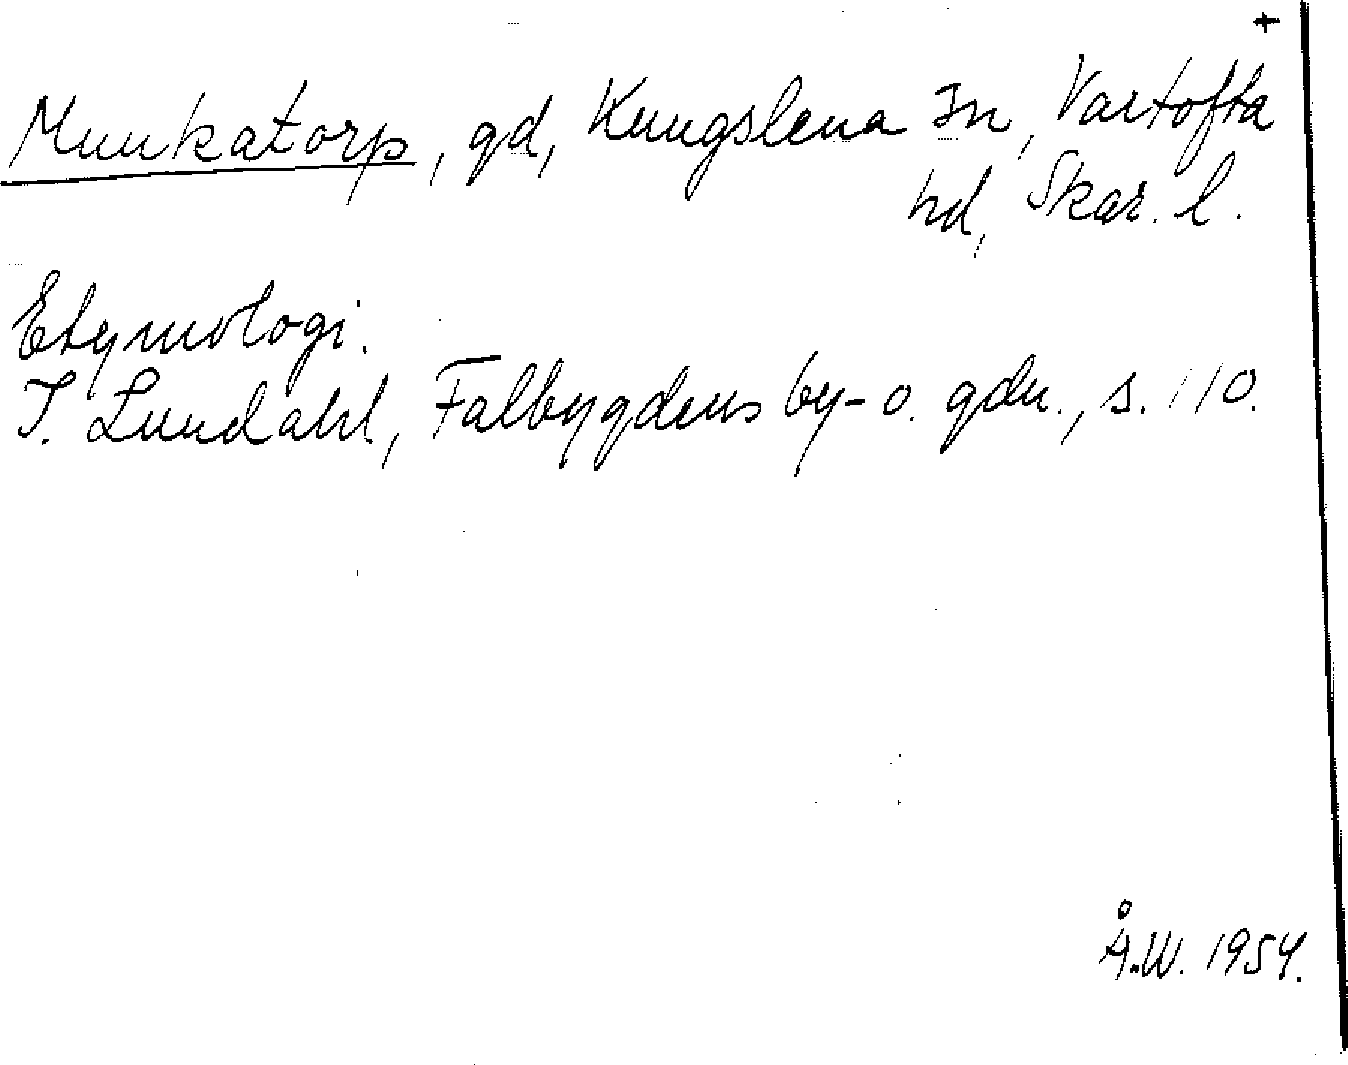 +
Munkatorp, gd, Kungslena sn, Vartofta
hd, Skar. l.
Etymologi.
I. Lundahl, Falbygdens by- o. gdn., s. 110.
Å.W. 1954.